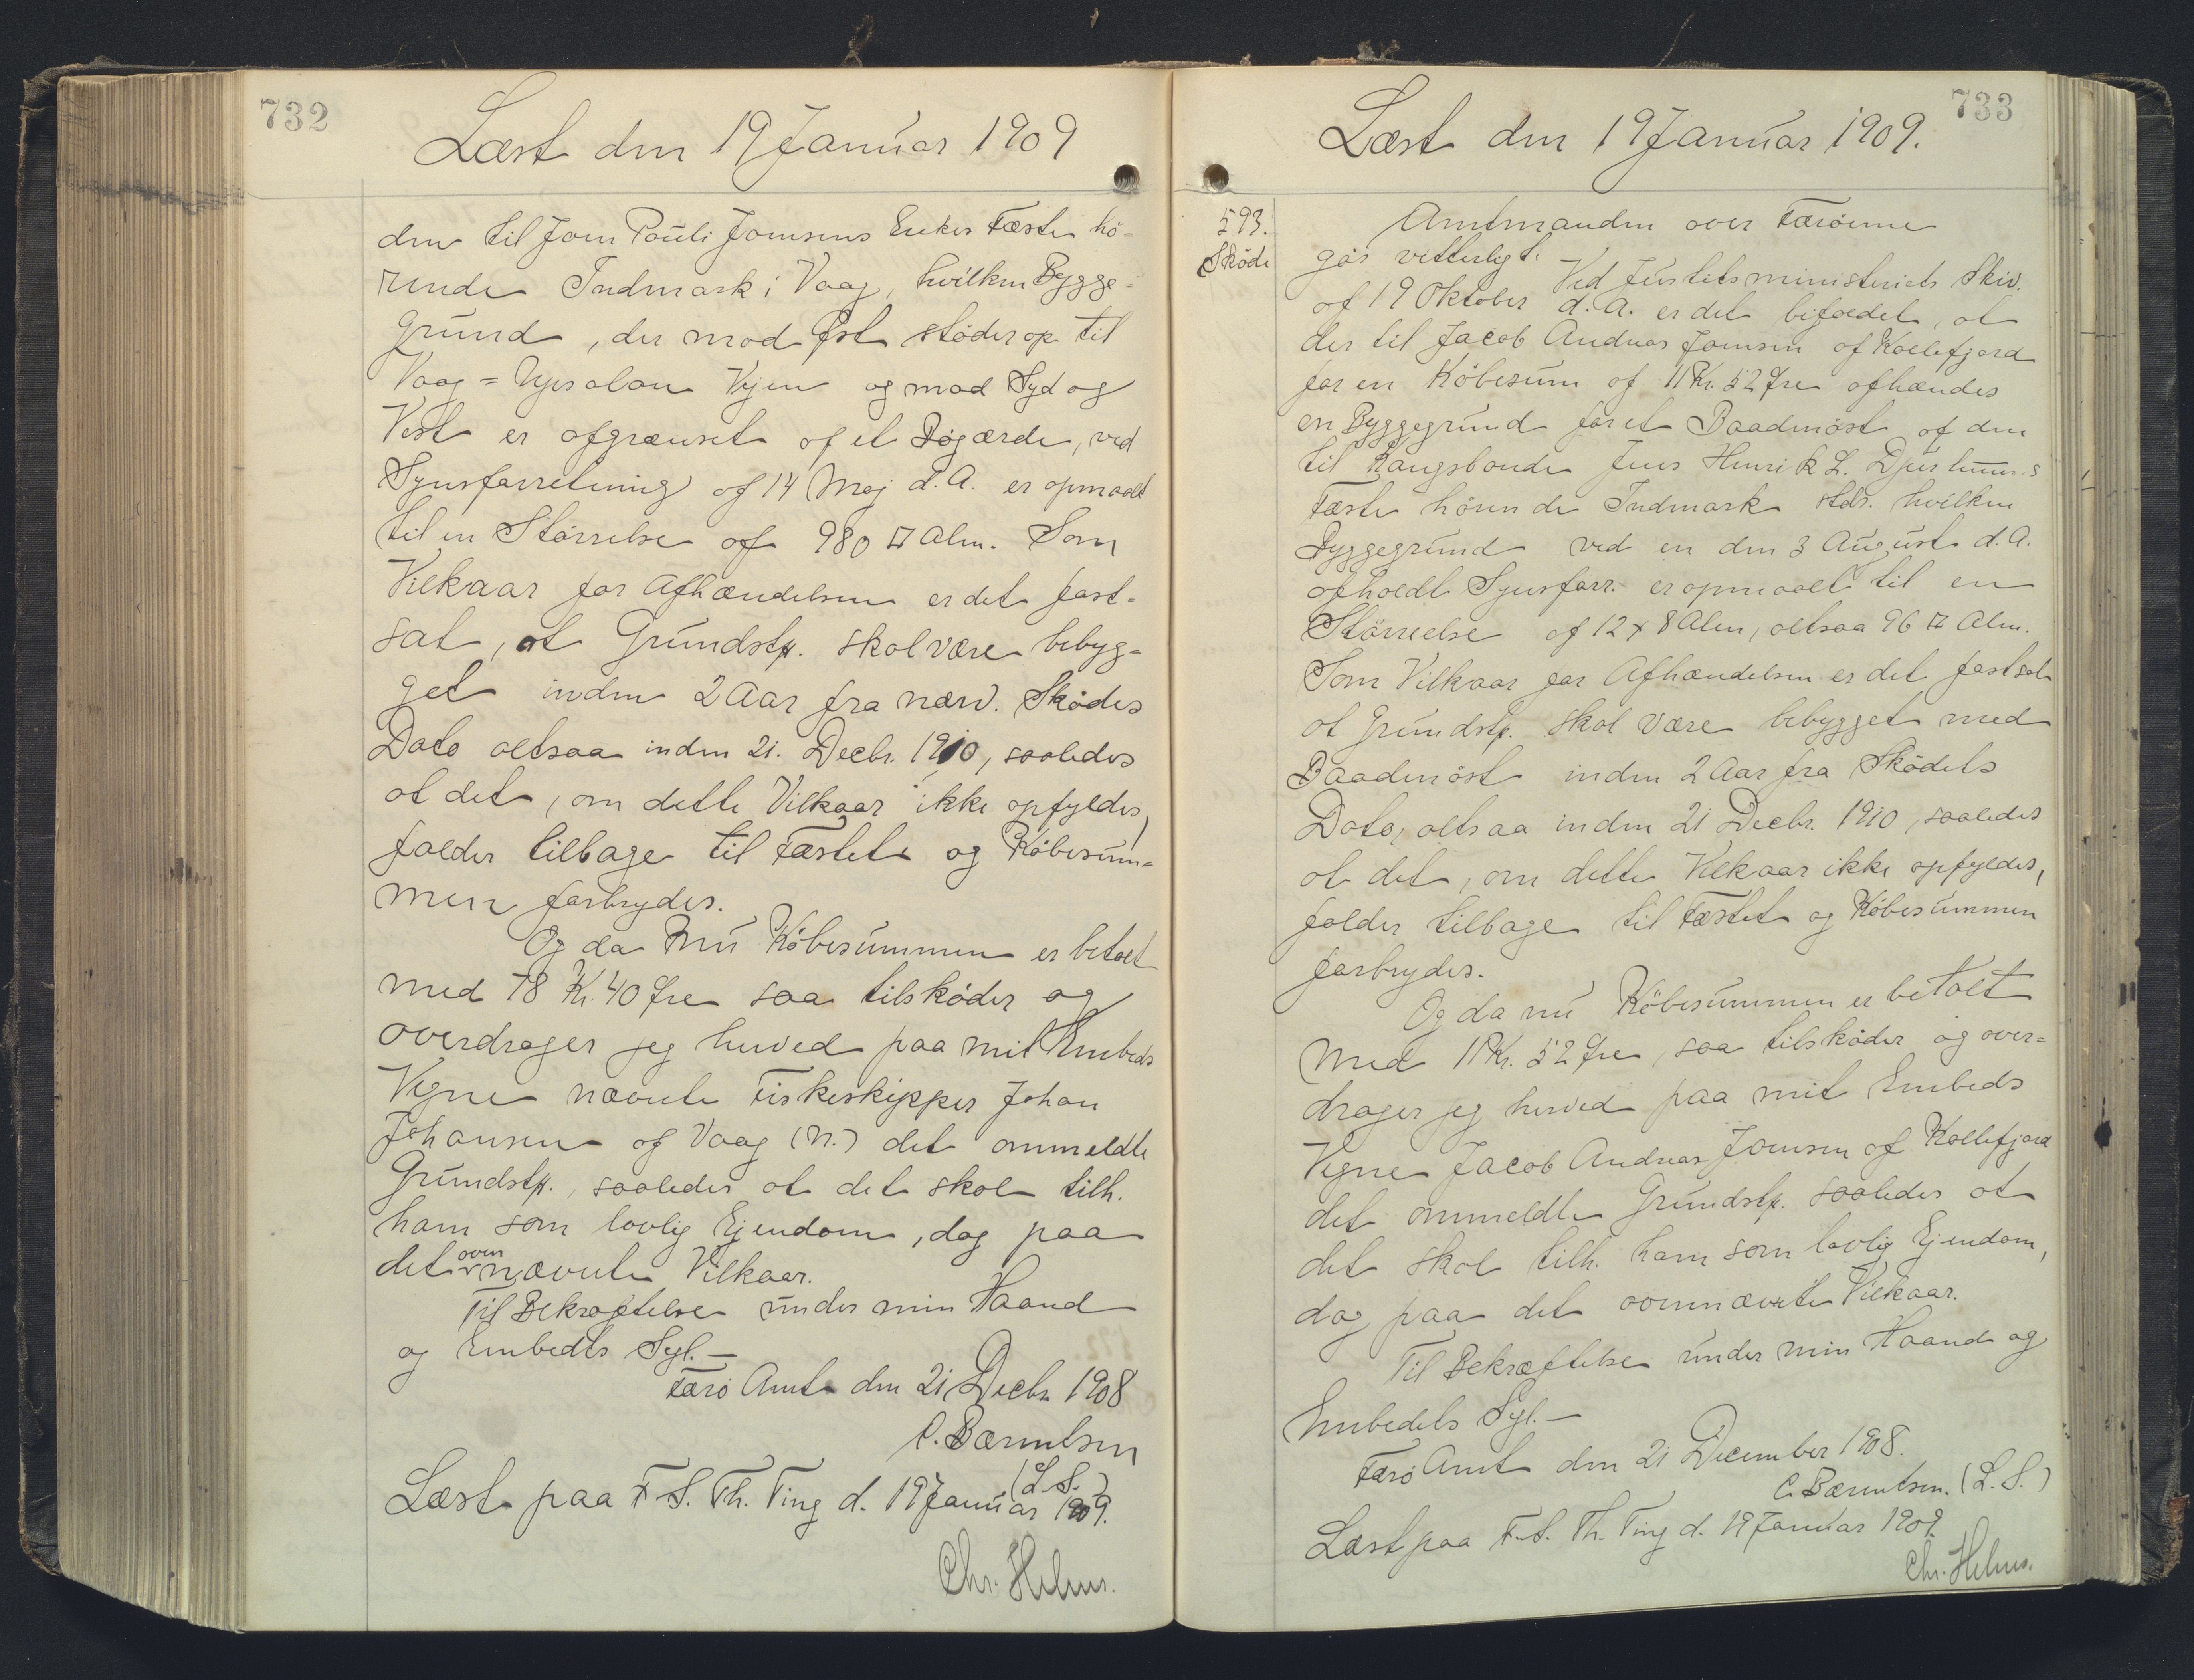 732
Læst den 19 Januar 1909
den til Joen Pouli Joensens Enkes Fæste hö-
rende Indmark i Vaag, hvilken Bygge-
grund, der mod Øst støder op til
Vaag = Vejen og mod Syd og
Vest er afgrænset af et Bøgærde, ved
Synsforretning af 14 Maj d. A. er opmaalt
til en Størrelse af 980 □ Alen. Som
Vilkaar for Afhændelsen er det fast-
sat, at Grundstk. skal være bebyg-
get inden 2 Aar fra nærv. Skødes
Dato altsaa inden 21. Decbr. 1910, saaledes
at det, om dette Vilkaar ikke opfyldes,
falder tilbage til Fæstet og Købesum-
men forbrydes.
Og da nu Købesummen er betalt
med 78 Kr. 40 Øre saa tilskøder og
overdrager jeg herved paa mit Embeds
Vegne nævnte Fiskeskipper Johan
Johansen af Vaag (N.) det ommeldte
Grundstk., saaledes at det skal tilh.
ham som lovlig Ejendom, dog paa
det oven nævnte Vilkaar.
Til Bekræftelse under min Haand
og Embedts Segl. —
Færö Amt den 21 Decbr. 1908
C. Bærentsen
(L. S.)
Læst paa F. S. Th. Ting d. 19 Januar 1909.
Chr. Helms.
733
Læst den 19 Januar 1909.
593.
Skøde
Amtmanden over Færøerne
gør vitterligt:
Ved Justitsministeriets Skiv.
af 19 Oktober d. A. er det bifaldet, at
der til Jacob Andreas Joensen af Kollefjord
for en Köbesum af 11 Kr. 52 Øre afhændes
en Byggegrund for et Baadenöst af den
til Kongsbonde Jens Henrik L. Djurhuus's
Fæste hörende Indmark stds. hvilken
Byggegrund ved en den 3 August d. A.
afholdt Synsforr. er opmaalt til en
Størrelse af 12 x 8 Alen, altsaa 96 □ Alen.
Som Vilkaar for Afhændelsen er det fastsat
at Grundstk. skal være bebygget med
Baadenöst inden 2 Aar fra Skødets
Dato, altsaa inden 21 Decbr. 1910, saaledes
at det, om dette Vilkaar ikke opfyldes,
falder tilbage til Fæstet og Köbesummen
forbrydes.
Og da nu Köbesummen er betalt
med 11 Kr. 52 Øre, saa tilskøder og over-
drager jeg herved paa mit Embeds
Vegne Jacob Andreas Joensen af Kollefjord
det ommeldte Grundstk. saaledes at
det skal tilh. ham som lovlig Ejendom,
dog paa det ovennævnte Vilkaar.
Til Bekræftelse under min Haand og
Embedets Segl. —
Færö Amt den 21 December 1908.
C. Bærentsen. (L. S.)
Læst paa F. S. Th. Ting d. 19 Januar 1909.
Chr. Helms.